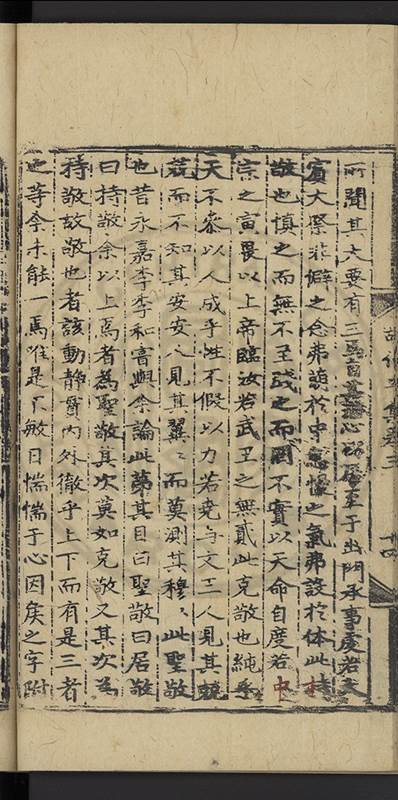 所聞其大要有三焉曰 心 至于出門承事處若大
賓大祭非僻之念弗萌於中怠慢之氣弗設於体此持
敬也慎之而無不至践之而罔不實以天命自度若中
宗之寅畏以上帝臨汝若武王之無貳此克敬也純乎
天不參以人成乎性不假以力若堯与文王人見其兢
兢而不知其安安人見其翼翼而莫測其穆穆此聖敬
也昔永嘉李季和嘗與余論此第其目曰聖敬曰居敬
曰持敬余以上焉者為聖敬其次莫如克敬又其次為
持敬故敬也者該動静貫内外徹乎上下而有是三者
之等余未能一焉唯是不敏日惴惴于心因矦之字附